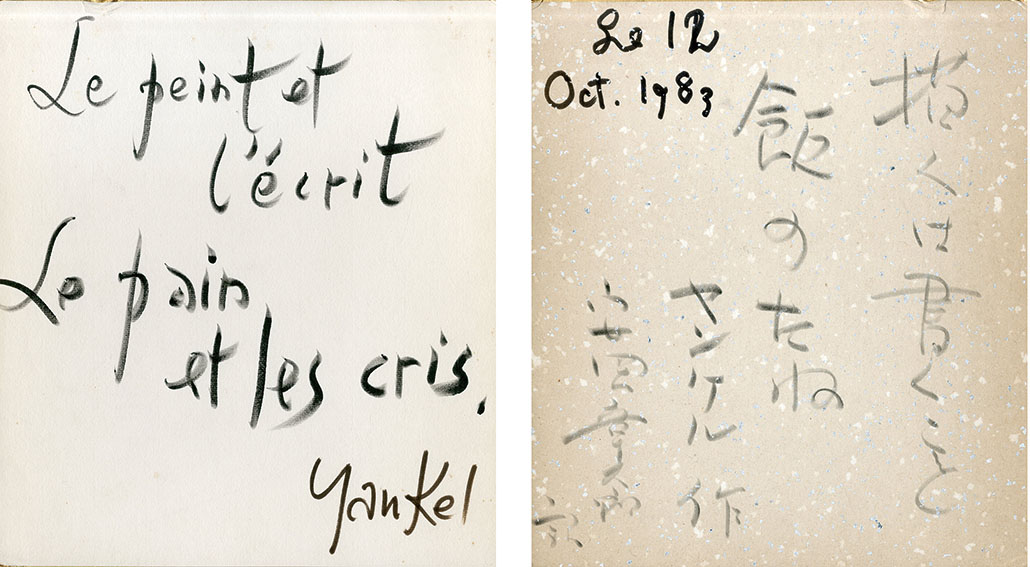 Le peint et
l'écrit
Le pain
et les cris.
Yankel
Le 12
Oct. 1983
描くは書くこと
飯のたね
ヤンケル 作
安岡章太郎
訳